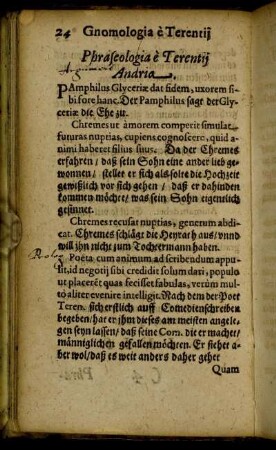 24 Gnomologia è Terentij
Phraseologia è Terentij
Andria.
PAmphilus Glyceriæ dat fidem, uxorem si-
bi fore hanc. Der Pamphilus sagt der Gly-
ceriæ die Ehe zu.
Chremes ut amorem comperit simulat
futuras nuptias, cupiens cognoscere, quid a-
nimi haberet filius suus. Da der Chremes
erfahren / daß sein Sohn eine ander lieb ge-
wonnen / stellet er sich als solte die Hochzeit
gewißlich vor sich gehen / daß er dahinden
kommen möchte / was sein Sohn eigentlich
gesinnet.
Chremes recusat nuptias, generum abdi-
cat. Chremes schlägt die Heyrath aus / vnnd
will ihn nicht zum Tochtermann haben.
Prolog. Poëta cum animum ad scribendum appu-
lit, id negotij sibi credidit solum dari, populo
ut placerêt quas fecisset fabulas, verùm mul-
tò aliter evenire intelligit. Nach dem der Poet
Teren. sich erstlich auff Comedienschreiben
begeben / hat er ihm dieses am meisten angele-
gen seyn lassen / daß seine Com. die er machet /
männiglichen gefallen möchten. Er siehet a-
ber wol / daß es weit anders daher gehet
Quam